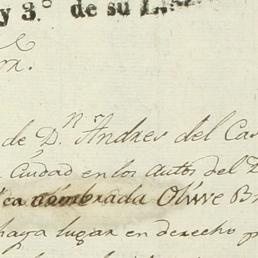 y 3.º de su
de D.n Andres del Cas
Ciudad en los autos del
ca nombrada Olive B
haya lugar en derecho